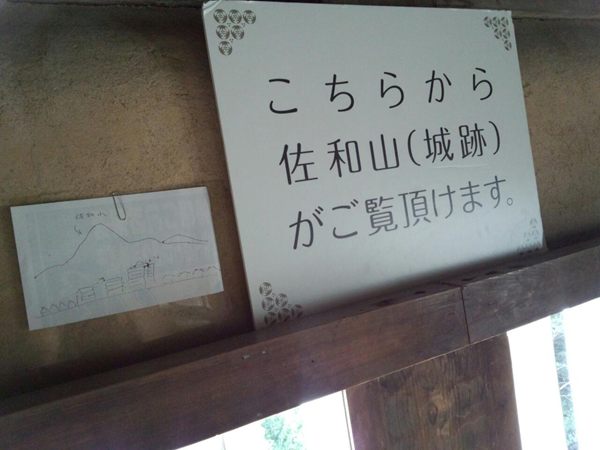 こちらから
佐和山(城跡)
がご覧頂けます。
佐和山